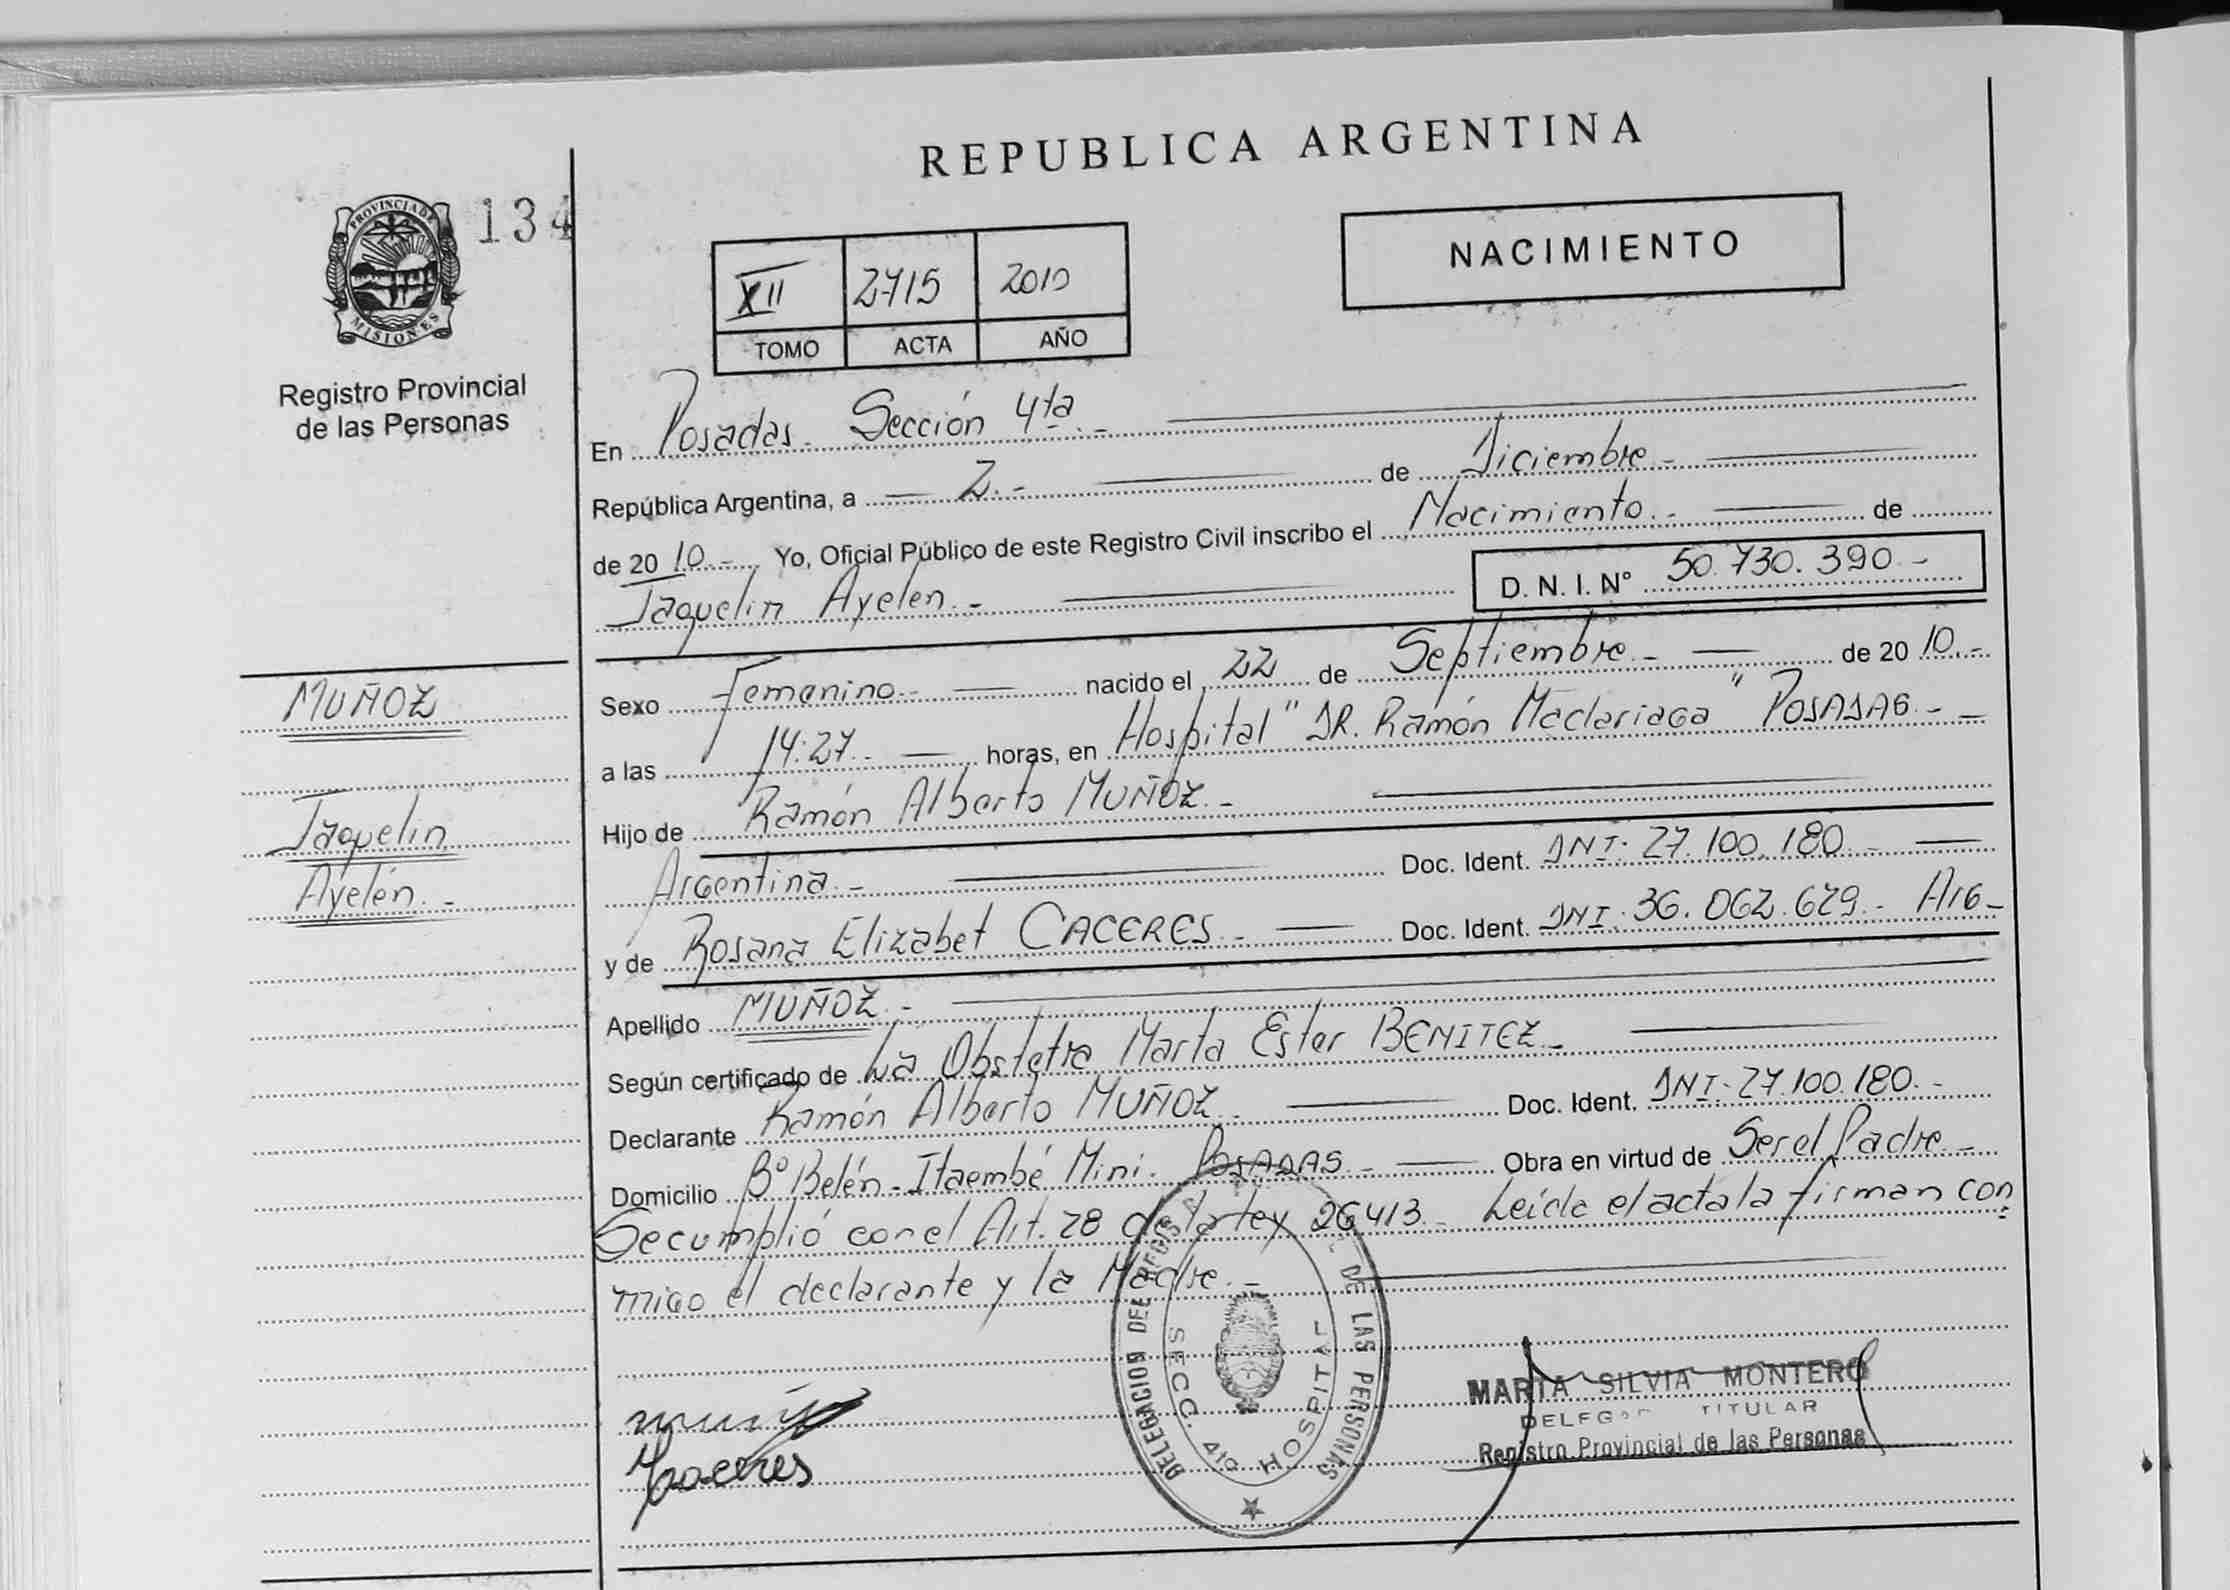 REPUBLICA ARGENTINA
PROVINCIA DE
MISIONES
134
Registro Provincial
de las Personas
NACIMIENTO
XII 2715 2010
TOMO ACTA AÑO
En Posadas. Sección 4ta.-
República Argentina, a 2.- de Diciembre.-
de 2010.- Yo, Oficial Público de este Registro Civil inscribo el Nacimiento.- de
Jaquelin Ayelen.- D. N. I. N° 50.730.390.-
Sexo Femenino.- nacido el 22 de Septiembre.- de 2010.-
a las 14:27.- horas, en Hospital "DR. Ramón Madariaga" POSADAS.-
Hijo de Ramón Alberto MUÑOZ.-
Argentina.- Doc. Ident. DNI. 27.100.180.-
y de Rosana Elizabet CACERES.- Doc. Ident. DNI. 36.062.629.- Arg-
Apellido MUÑOZ.-
Según certificado de La Obstetra Marta Ester BENITEZ.-
Declarante Ramón Alberto MUÑOZ.- Doc. Ident. DNI. 27.100.180.-
Domicilio B° Belén-Itaembé Mini. POSADAS.- Obra en virtud de Ser el Padre.-
Se cumplió con el Art. 28 de la Ley 26413.- Leída el acta la firman con
migo el declarante y la Madre.-
MUÑOZ
Jaquelin
Ayelén.-
Caceres
DELEGACION DEL REGIS DE LAS PERSONAS
SECC. 4ta HOSPITAL
MARIA SILVIA MONTERO
TITULAR
Registro Provincial de las Personas